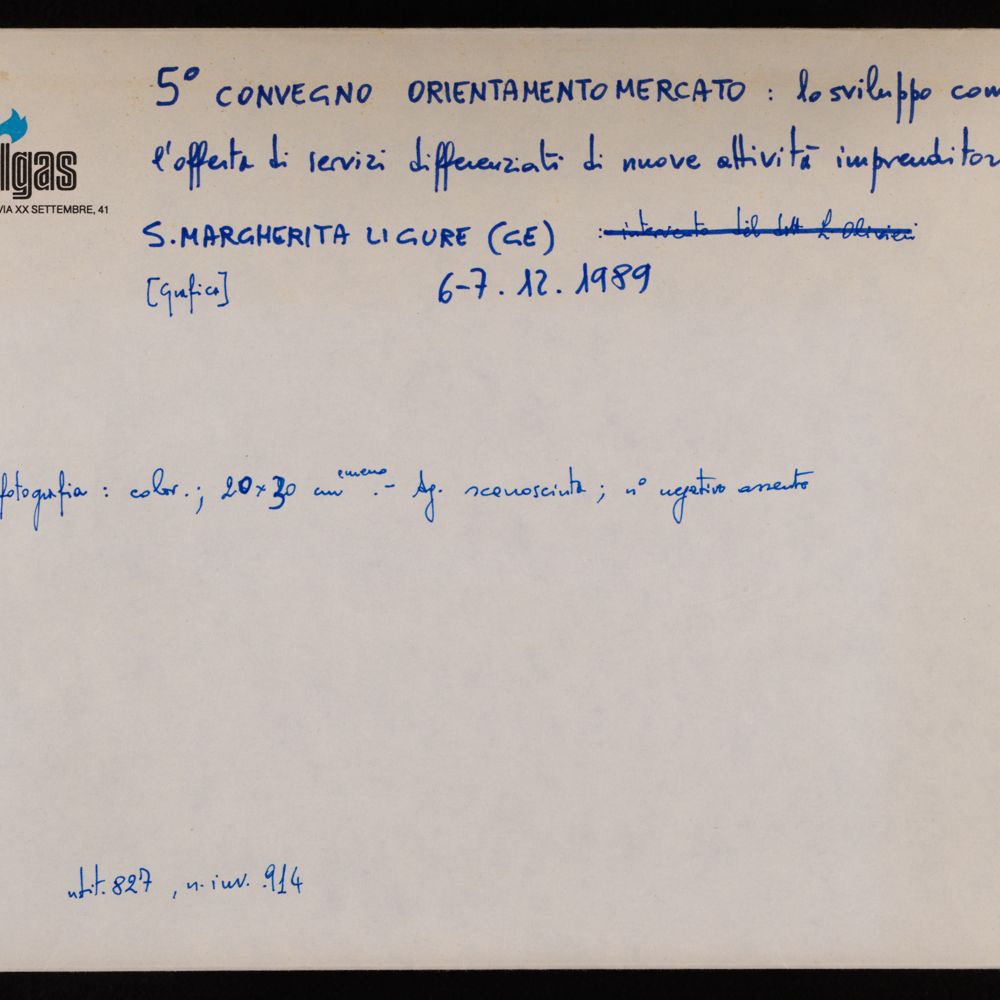 5° CONVEGNO ORIENTAMENTO MERCATO : lo sviluppo com
l'offerta di servizi differenziati di nuove attività imprenditor
lgas
VIA XX SETTEMBRE, 41
S. MARGHERITA LIGURE (GE) : intervento del dott L Olivieri
[Grafica] 6-7.12.1989
fotografia : color.; 20x30 cm .- Ag. sconosciuta; n° negativo assente
, n. inv. 914